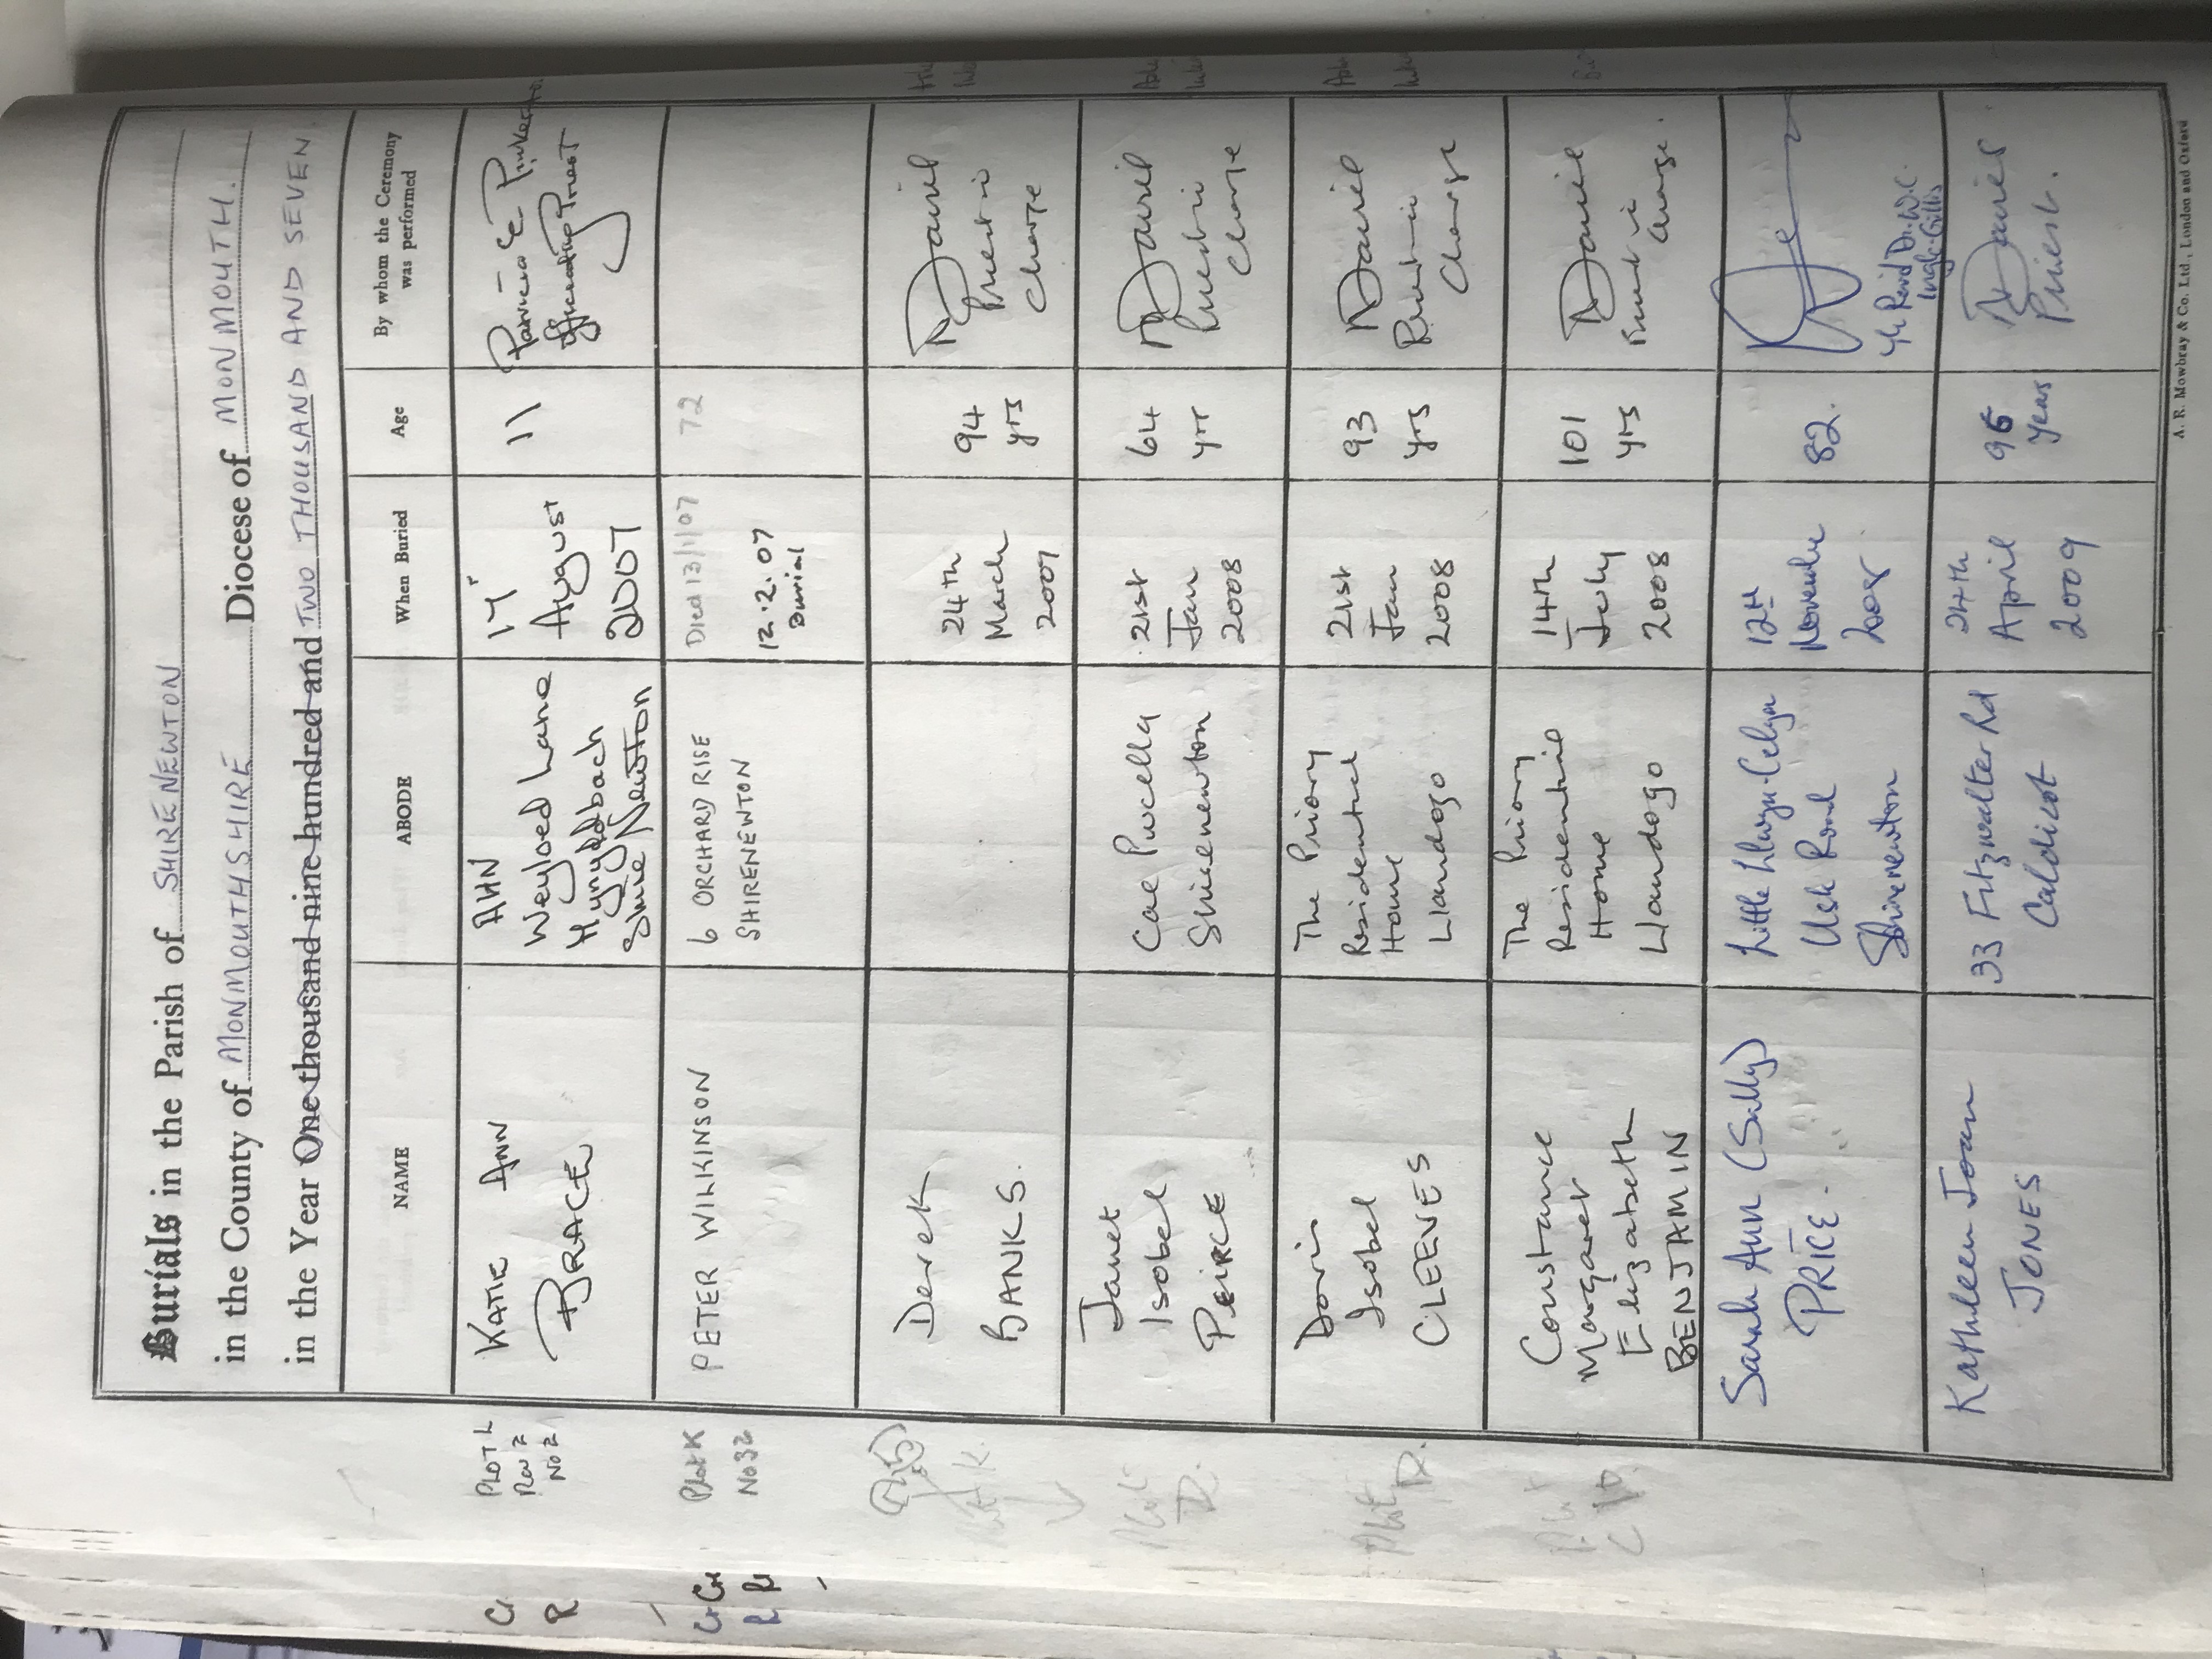 Burials in the Parish of SHIRENEWTON
in the County of MONMOUTHSHIRE Diocese of MONMOUTH.
in the Year One thousand nine hundred and TWO THOUSAND AND SEVEN
NAME ABODE When Buried Age By whom the Ceremony was performed
PLOT L
Row 2
No 2
KATIE ANN
BRACE
Lane
Shire Newton
17
August
2007
11
Patricia E
Officiating Priest
Plot K
No 32
PETER WILKINSON
6 ORCHARD RISE
SHIRENEWTON
Died 13/1/07
12.2.07
Burial
72
Derek
BANKS.
24th
March
2007
94
yrs
Davies
Priest in
Charge
Plot
D.
Janet
Isobel
PEIRCE
Cae Pwcella
Shirenewton
21st
Jan
2008
64
yrs
Davies
Priest in
Charge
Plot
D.
Doris
Isobel
CLEEVES
The Priory
Residential
Home
Llandogo
21st
Jan
2008
93
yrs
Davies
Priest in
Charge
Plot
D.
Constance
Margaret
Elizabeth
BENJAMIN
The Priory
Residential
Home
Llandogo
14th
July
2008
101
yrs
Davies
Priest in
Charge.
Sarah Ann (Sally)
PRICE.
Little
Usk Road
Shirenewton
12th
November
2008
82.
Kathleen Joan
JONES
33 Fitzwalter Rd
Caldicot
24th
April
2009
Years
Davies
Priest.
A. R. Mowbray & Co. Ltd., London and Oxford